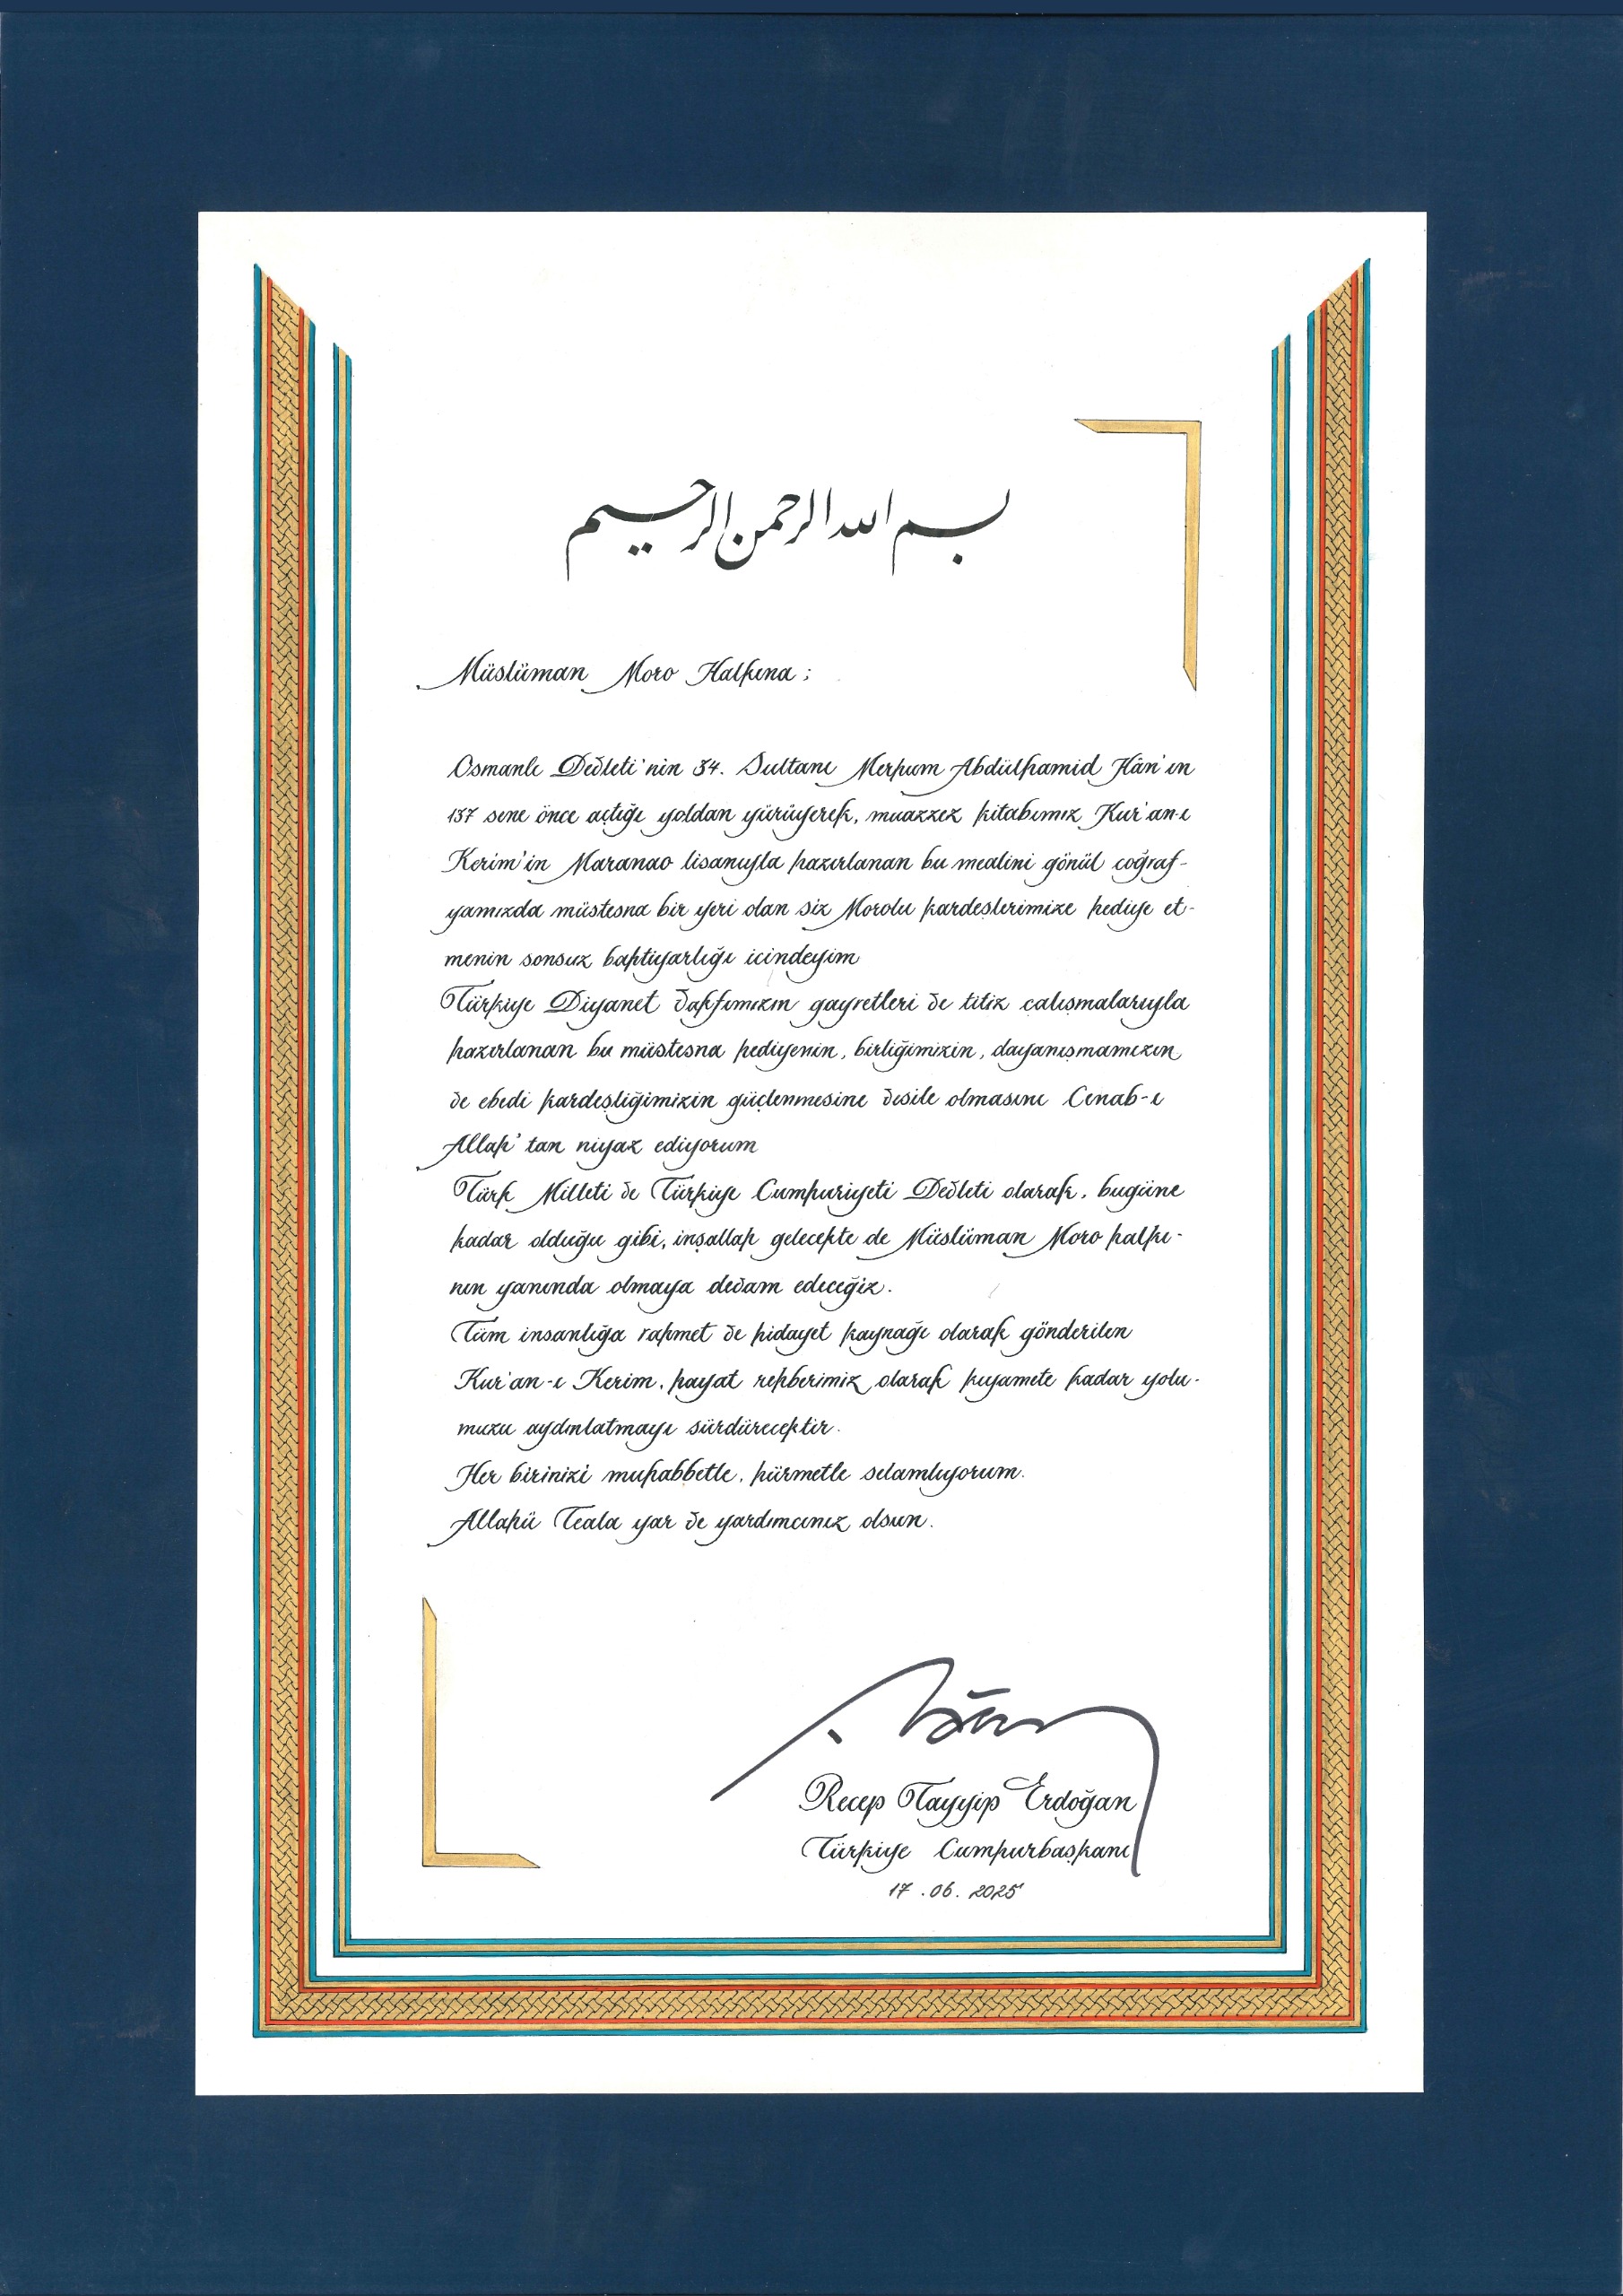 بسم الله الرحمن الرحيم
Müslüman Moro Halkına ;
Osmanlı Devleti'nin 34. Sultanı Merhum Abdülhamid Hân'ın
137 sene önce açtığı yoldan yürüyerek, muazzez kitabımız Kur'an-ı
Kerim'in Maranao lisanıyla hazırlanan bu mealini gönül coğraf-
yamızda müstesna bir yeri olan siz Morolu kardeşlerimize hediye et-
menin sonsuz bahtiyarlığı icindeyim
Türkiye Diyanet Vakfımızın gayretleri ve titiz calışmalarıyla
hazırlanan bu müstesna hediyenin, birliğimizin, dayanışmamızın
ve ebedi kardeşliğimizin güçlenmesine vesile olmasını Cenab-ı
Allah'tan niyaz ediyorum
Türk Milleti ve Türkiye Cumhuriyeti Devleti olarak, bugüne
kadar olduğu gibi, inşallah gelecekte de Müslüman Moro halkı-
nın yanında olmaya devam edeceğiz.
Tüm insanlığa rahmet ve hidayet kaynağı olarak gönderilen
Kur'an-ı Kerim, hayat rehberimiz olarak kıyamete kadar yolu-
muzu aydınlatmayı sürdürecektir.
Her birinizi muhabbetle, hürmetle selamlıyorum.
Allahü Teala yar ve yardımcınız olsun.
Recep Tayyip Erdoğan
Türkiye Cumhurbaşkanı
17.06.2025